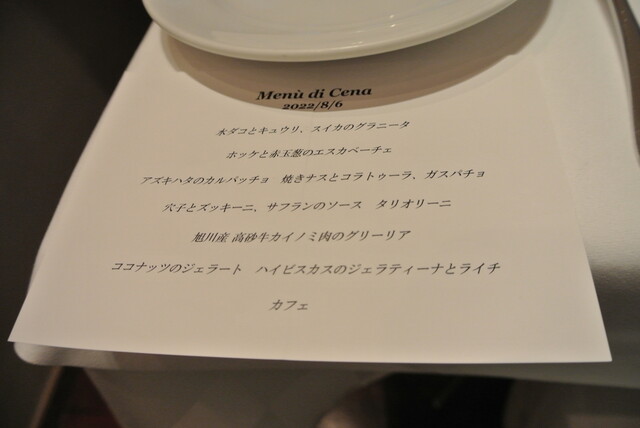 Menù di Cena
2022/8/6
水ダコとキュウリ、スイカのグラニータ
ホッケと赤玉葱のエスカベーチェ
アズキハタのカルパッチョ　焼きナスとコラトゥーラ、ガスパチョ
穴子とズッキーニ、サフランのソース　タリオリーニ
旭川産 高砂牛カイノミ肉のグリーリア
ココナッツのジェラート　ハイビスカスのジェラティーナとライチ
カフェ